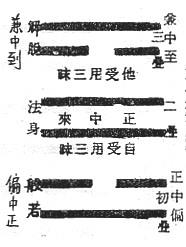 兼中至
三疊
解脫
兼中到
他受用三昧
二疊
正中來
法身
自受用三昧
正中偏
初疊
般若
偏中正